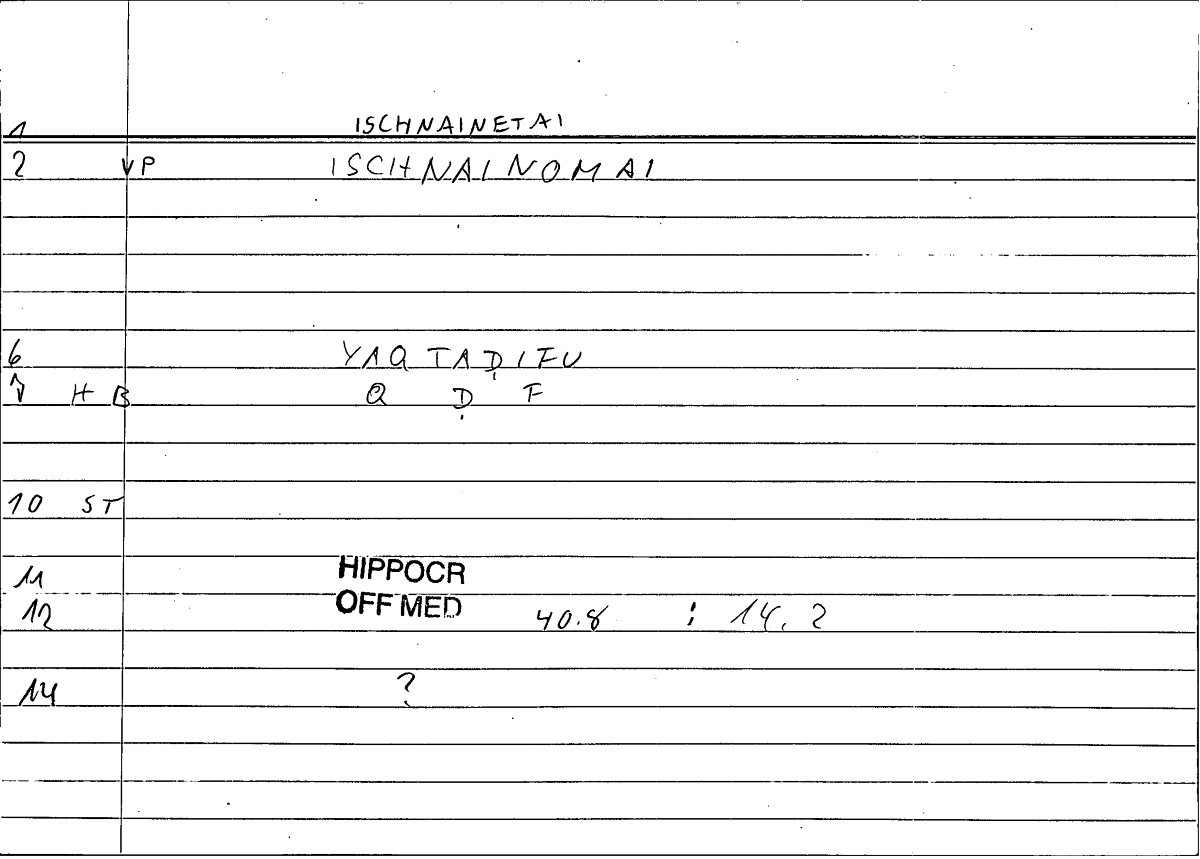 1 ISCHNAINETAI
2 ↓P ISCHNAINOMAI
6 YAQTAḌIFU
HB Q Ḍ F
10 ST
11 HIPPOCR
12 OFF MED 40.8 : 14.2
14 ?